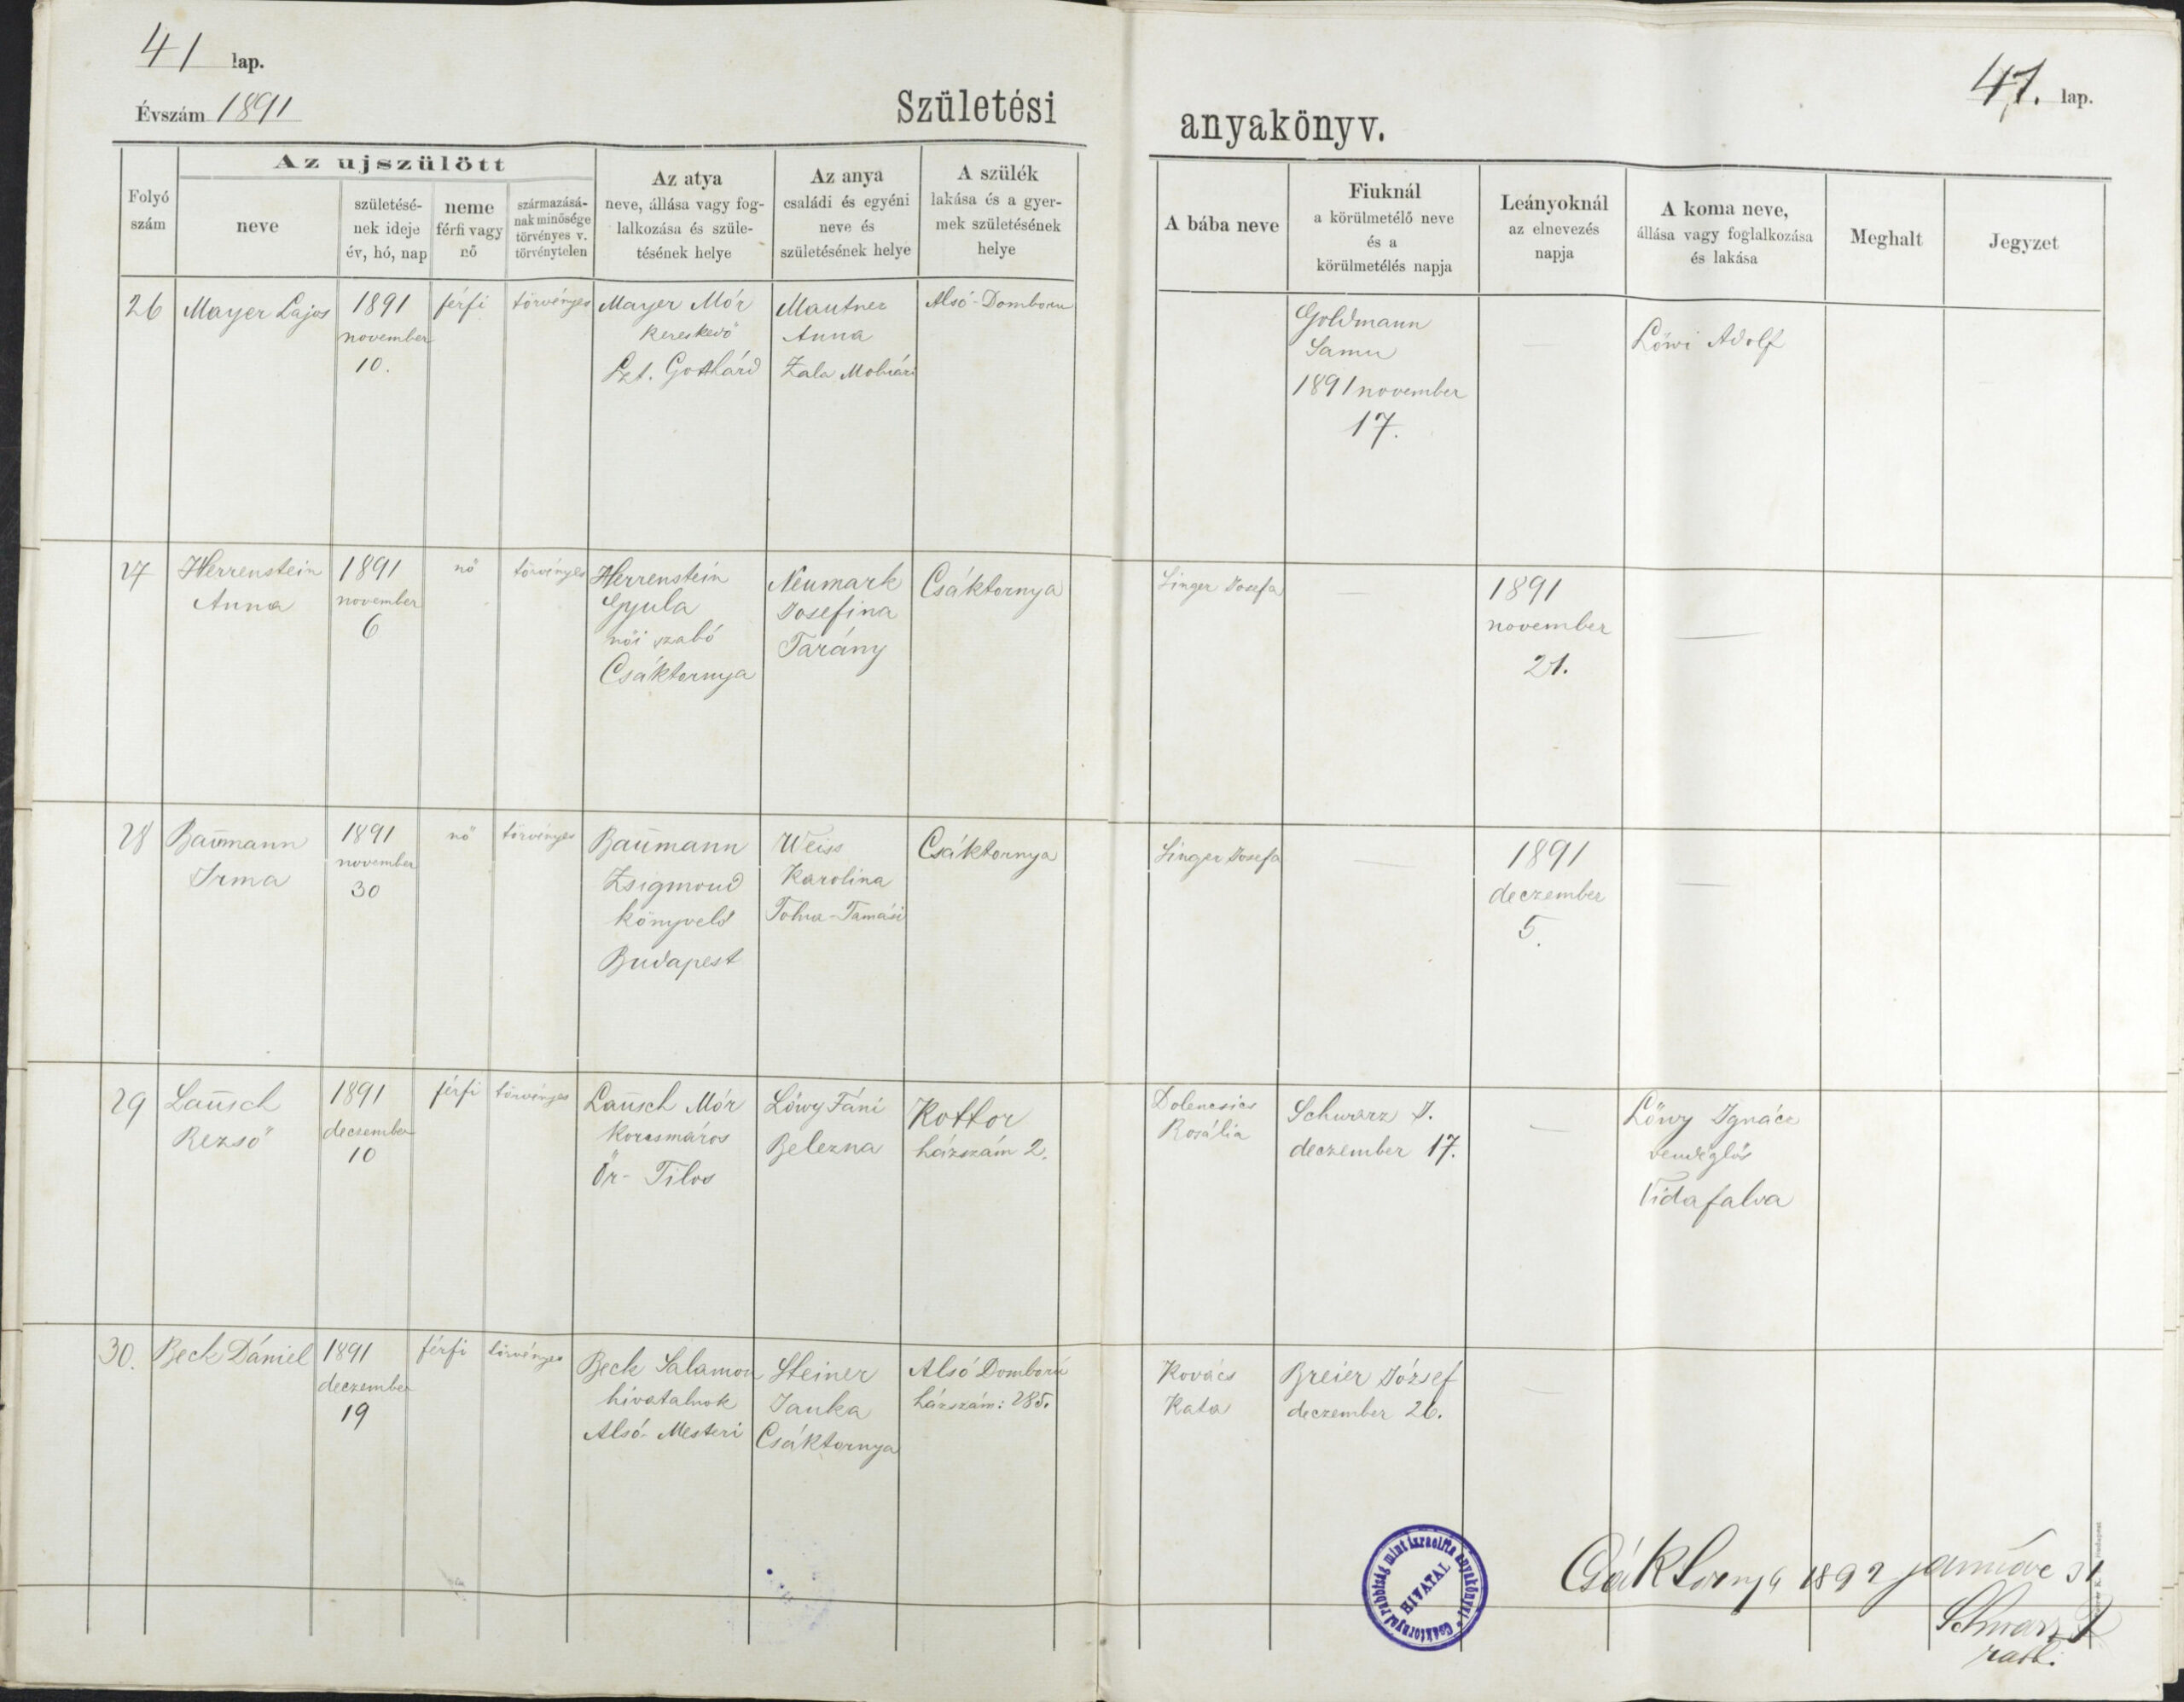 41 lap.
Évszám 1891
Születési
anyakönyv.
41. lap.
Az ujszülött
Folyó
szám
neve
születésé-
nek ideje
év, hó, nap
neme
férfi vagy
nő
származásá-
nak minősége
törvényes v.
törvénytelen
Az atya
neve, állása vagy fog-
lalkozása és szüle-
tésének helye
Az anya
családi és egyéni
neve és
születésének helye
A szülék
lakása és a gyer-
mek születésének
helye
A bába neve
Fiuknál
a körülmetélő neve
és a
körülmetélés napja
Leányoknál
az elnevezés
napja
A koma neve,
állása vagy foglalkozása
és lakása
Meghalt
Jegyzet
26
Mayer Lajos
1891
november
10.
férfi
törvényes
Mayer Mór
kereskedő
Szt. Gotthárd
Mautner
Anna
Zala Molnári
Alsó-Domboru
Goldmann
Samu
1891 november
17.
Löwi Adolf
27
Herrenstein
Anna
1891
november
6
nő
törvényes
Herrenstein
Gyula
női szabó
Csáktornya
Neumark
Josefina
Tarány
Csáktornya
Singer Josefa
1891
november
21.
28
Baumann
Irma
1891
november
30
nő
törvényes
Baumann
Zsigmond
könyvelő
Budapest
Weiss
Karolina
Tolna-Tamási
Csáktornya
Singer Josefa
1891
deczember
5.
29
Lausch
Rezső
1891
deczember
10
férfi
törvényes
Lausch Mór
korcsmáros
Őr-Tilos
Löwy Fáni
Belezna
Kottor
házszám 2.
Dolencsics
Rozália
Schwarz J.
deczember 17.
Löwy Ignácz
vendéglős
Vidafalva
30.
Beck Dániel
1891
deczember
19
férfi
törvényes
Beck Salamon
hivatalnok
Alsó-Mesteri
Steiner
Janka
Csáktornya
Alsó Domború
házszám: 285.
Kovács
Kata
Breier József
deczember 26.
Csáktornyai rabbiság mint izraelita anyakönyvi
HIVATAL
Csáktornya 1892 januáre 31
Schwarz J
rabb.